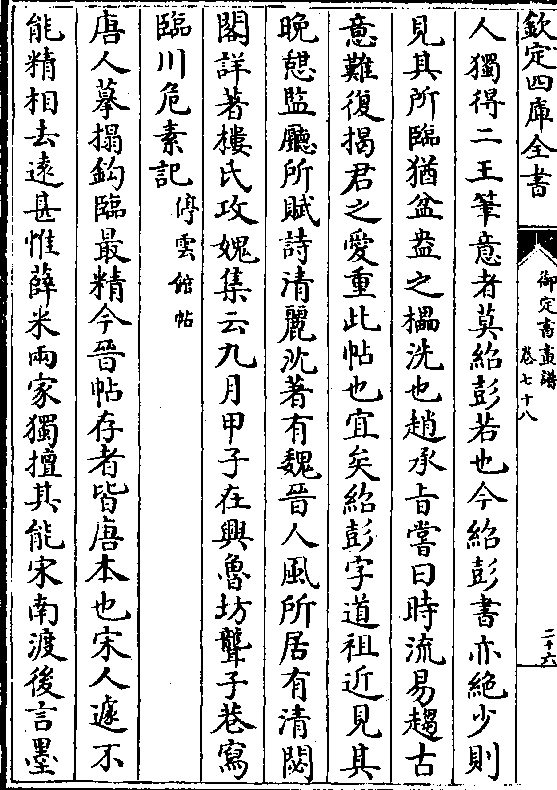 欽定四庫全書
御定書畫譜
卷七十八
二十六
人獨得二王筆意者莫紹彭若也今紹彭書亦絶少則
見其所臨猶盆盎之櫑洗也趙承旨嘗曰時流易趨古
意難復揭君之愛重此帖也宜矣紹彭字道祖近見其
晩憇監廳所賦詩清麗沈著有魏晉人風所居有清閟
閣詳著樓氏攻媿集云九月甲子在興魯坊聾子巷寫
臨川危素記停雲館帖
唐人摹搨鈎臨最精今晉帖存者皆唐本也宋人遽不
能精相去遠甚惟薛米兩家獨擅其能宋南渡後言墨